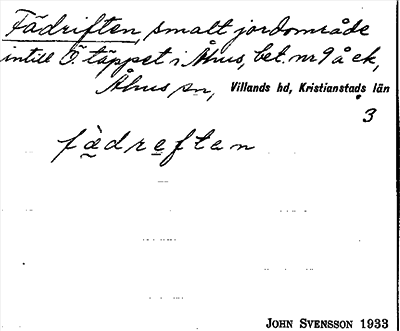 Fädriften, smalt jordområde
intill Ö. täppet i Åhus, bet. nr 9 å ek,
Åhus sn, Villands hd, Kristianstads län
3
fàdrẹftẹn
JOHN SVENSSON 1933